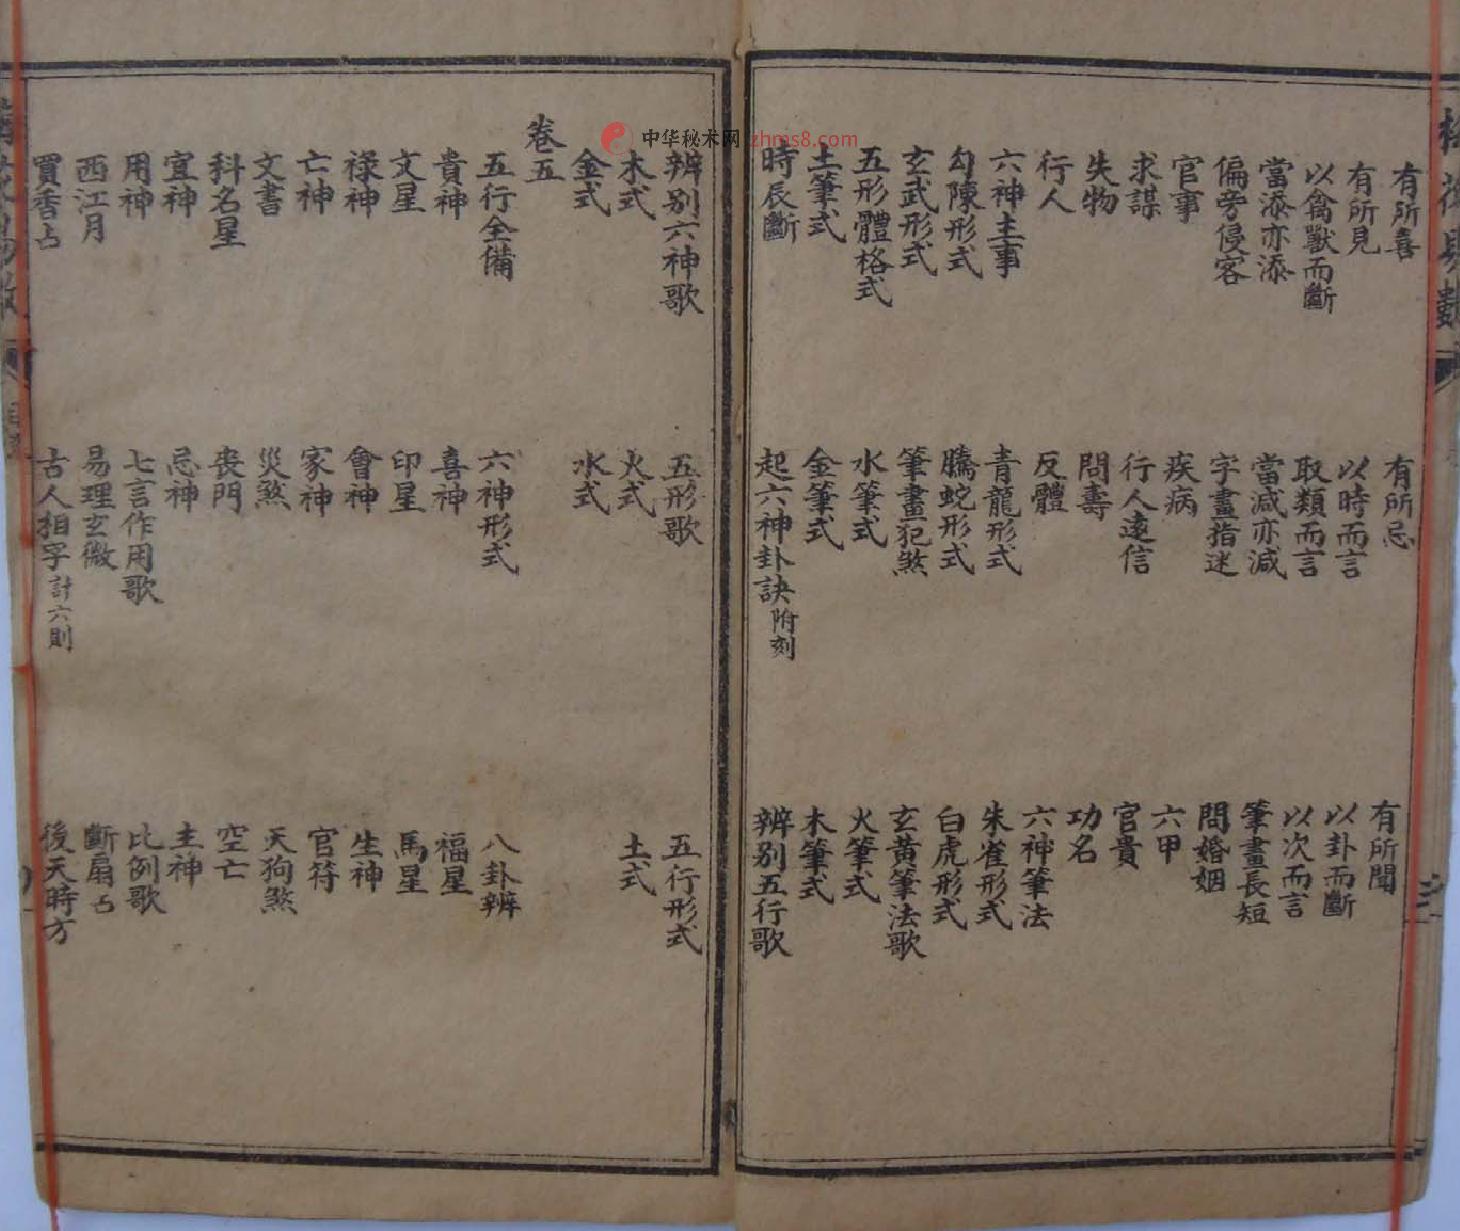 有所喜　有所忌　有所聞
有所見　以時而言　以卦而斷
以禽獸而斷　取類而言　以次而言
當添亦添　當減亦減　筆畫長短
偏旁侵客　字畫指迷　問婚姻
官事　疾病　六甲
求謀　行人遠信　官貴
失物　問壽　功名
行人　反體　六神筆法
六神主事　青龍形式　朱雀形式
勾陳形式　騰蛇形式　白虎形式
玄武形式　筆畫犯煞　玄黃筆法歌
五形體格式　水筆式　火筆式
土筆式　金筆式　木筆式
時辰斷　起六神卦訣附刻　辨別五行歌
辨別六神歌　五形歌　五行形式
木式　火式　土式
金式　水式
卷五
五行全備　六神形式　八卦辨
貴神　喜神　福星
文星　印星　馬星
祿神　會神　生神
亡神　家神　官符
文書　災煞　天狗煞
科名星　喪門　空亡
宜神　忌神　主神
用神　七言作用歌　比例歌
西江月　易理玄微　斷扇占
買香占　古人相字計六則　後天時方
中华秘术网 zhms8.com